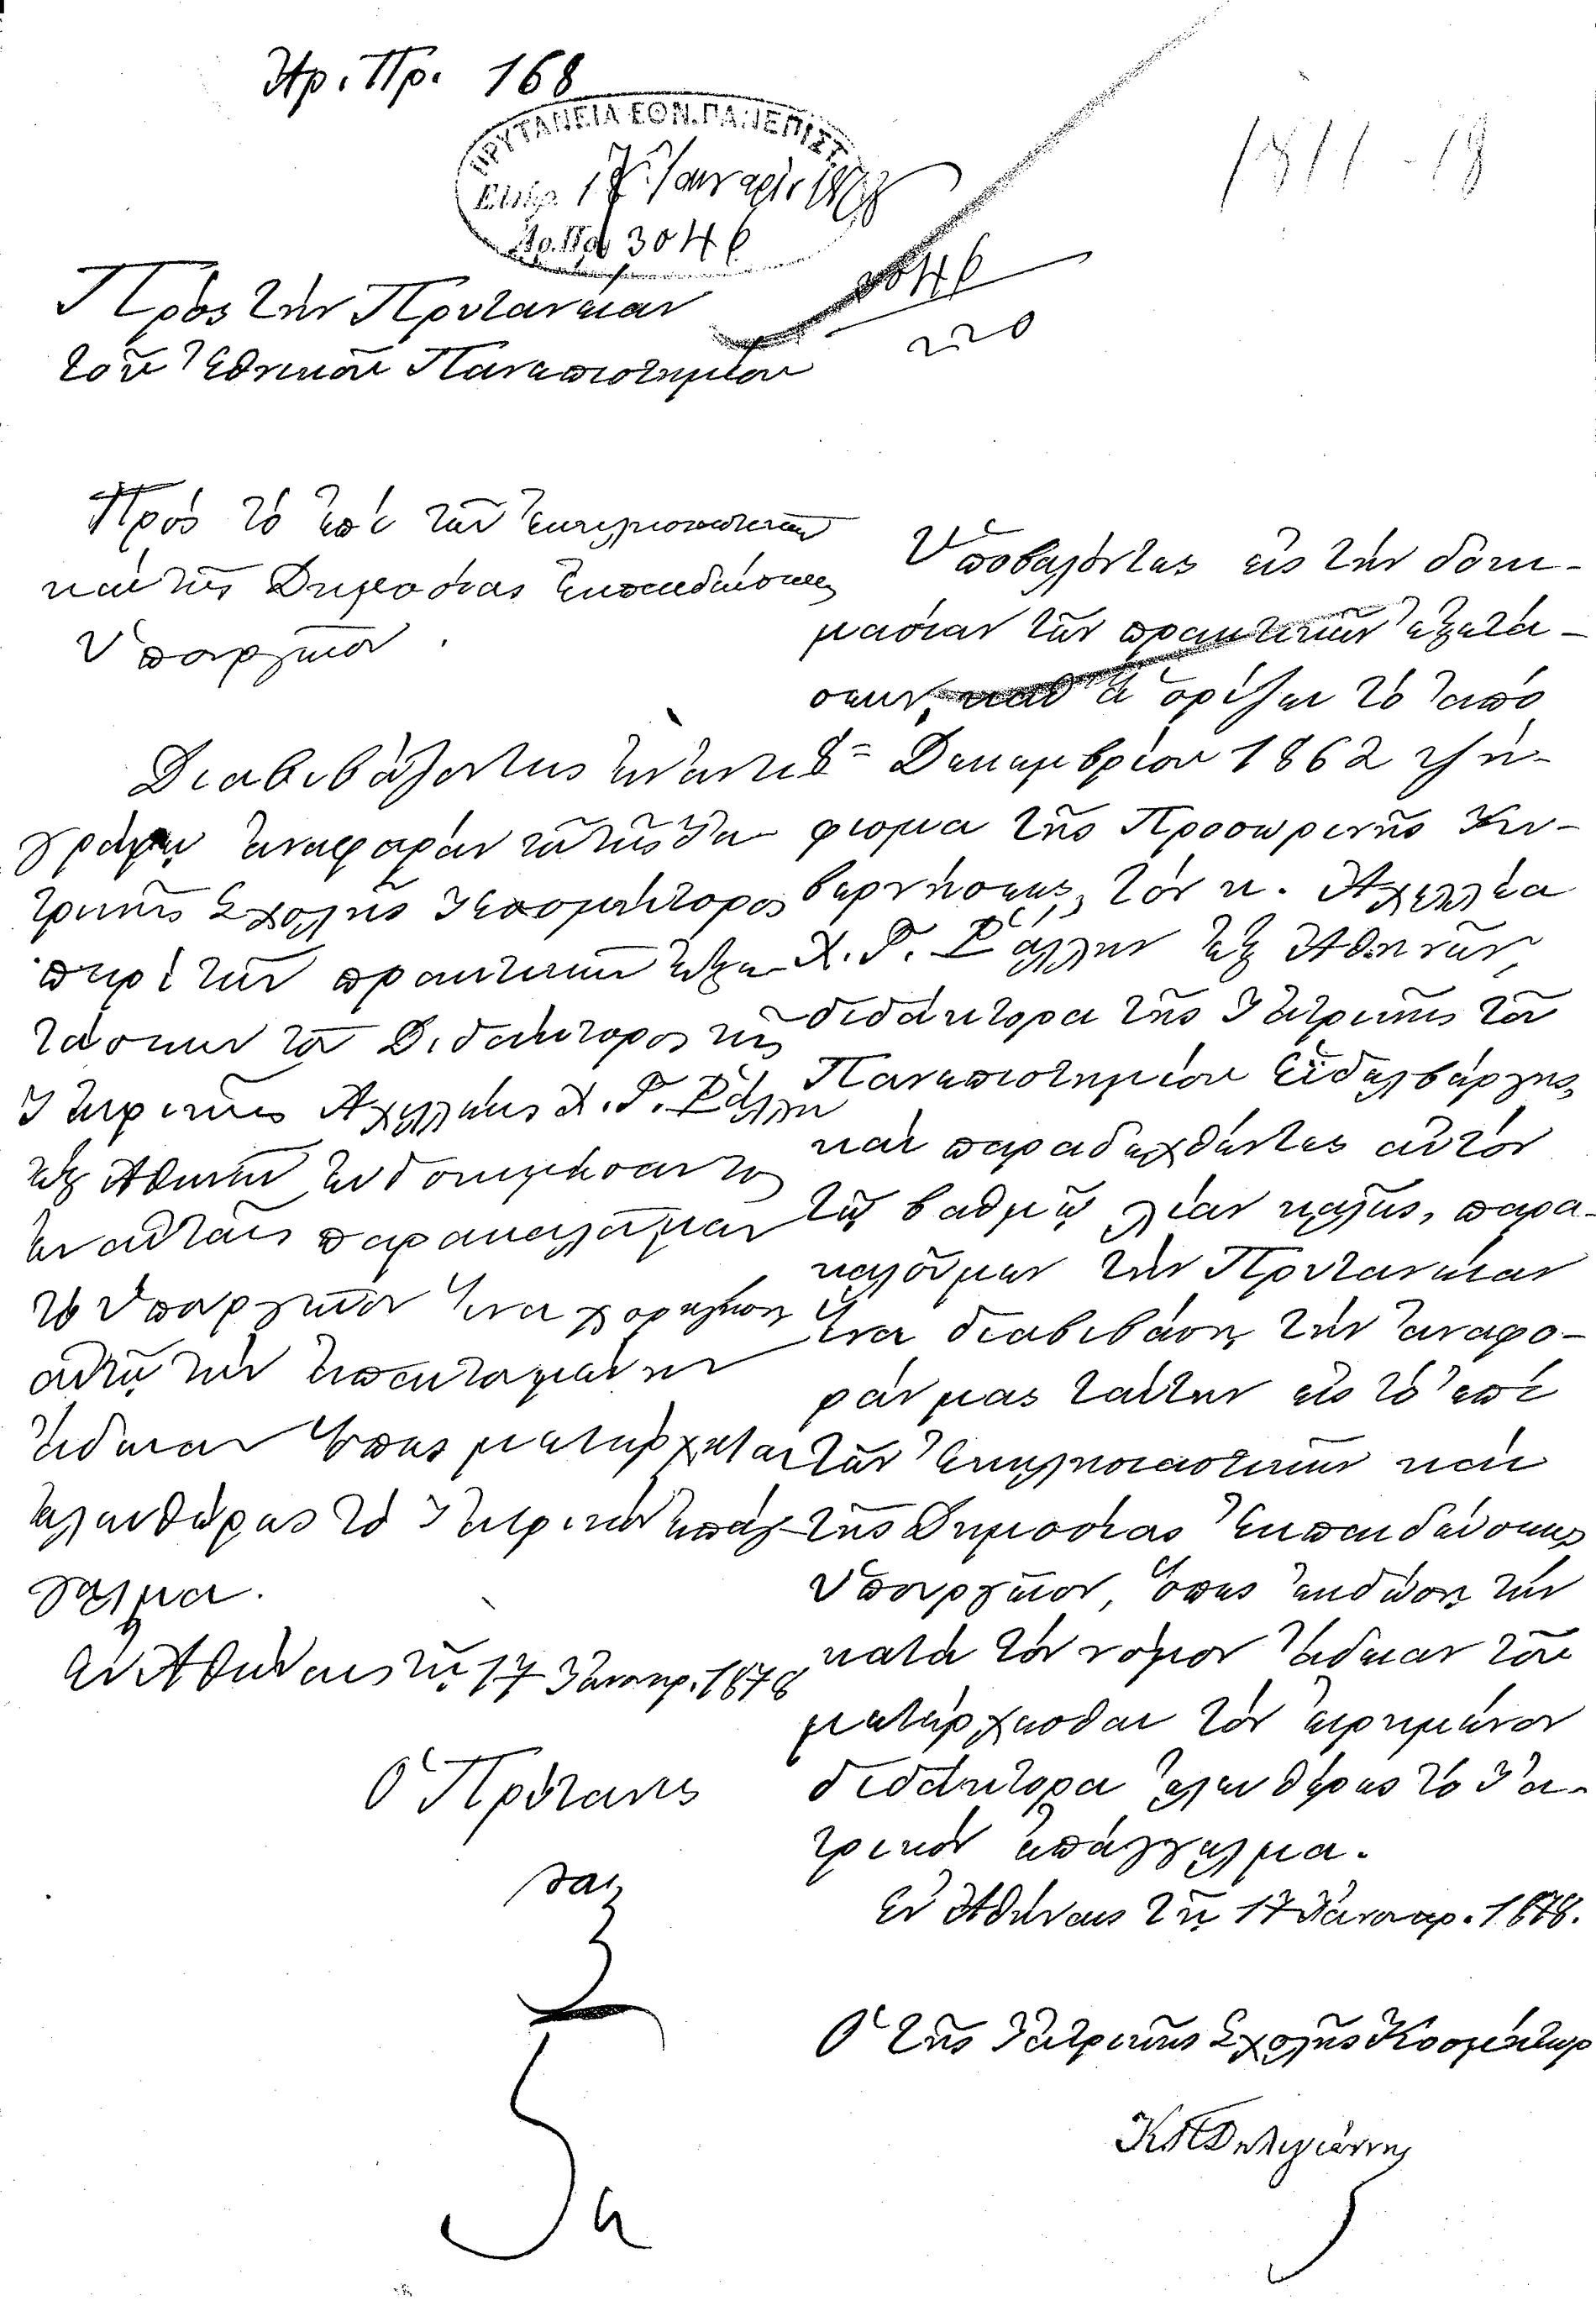 Ἀρ. Πρ. 168
ΠΡΥΤΑΝΕΙΑ ΕΘΝ. ΠΑΝΕΠΙΣΤ.
17 Ἰανουαρίου 1878
Ἀρ. Πρ. 3046
1877-78
3046
220
Πρὸς τὴν Πρυτανείαν
τοῦ Ἐθνικοῦ Πανεπιστημίου
Πρὸς τὸ ἐπὶ τῶν Ἐκκλησιαστικῶν
καὶ τῆς Δημοσίας Ἐκπαιδεύσεως
Ὑπουργεῖον.
Διαβιβάζοντες ἐν ἀντι-
γράφῳ ἀναφορὰν τοῦ τῆς Ἰα-
τρικῆς Σχολῆς Κοσμήτορος
περὶ τῶν πρακτικῶν ἐξε-
τάσεων τοῦ Διδάκτορος τῆς
Ἰατρικῆς Ἀχιλλέως Χ. Γ. Ῥάλλη
ἐξ Ἀθηνῶν εὐδοκιμήσαντος
ἐν αὐταῖς παρακαλοῦμεν
τὸ Ὑπουργεῖον ἵνα χορηγήσῃ
αὐτῷ τὴν ἀπαιτουμένην
ἄδειαν ὅπως μετέρχηται
ἐλευθέρως τὸ Ἰατρικὸν ἐπάγ-
γελμα.
Ἐν Ἀθήναις τῇ 17 Ἰανουαρ. 1878
Ὁ Πρύτανις
Ὑποβαλόντες εἰς τὴν δοκι-
μασίαν τῶν πρακτικῶν ἐξετά-
σεων, καθ' ἃ ὁρίζει τὸ ἀπὸ
8 Δεκεμβρίου 1862 ψή-
φισμα τῆς Προσωρινῆς Κυ-
βερνήσεως, τὸν κ. Ἀχιλλέα
Χ. Γ. Ῥάλλην ἐξ Ἀθηνῶν,
διδάκτορα τῆς Ἰατρικῆς τοῦ
Πανεπιστημίου Ἐϊδελβέργης,
καὶ παραδεχθέντες αὐτὸν
τῷ βαθμῷ λίαν καλῶς, παρα-
καλοῦμεν τὴν Πρυτανείαν
ἵνα διαβιβάσῃ τὴν ἀναφο-
ράν μας ταύτην εἰς τὸ ἐπὶ
τῶν Ἐκκλησιαστικῶν καὶ
τῆς Δημοσίας Ἐκπαιδεύσεως
Ὑπουργεῖον, ὅπως ἐκδώσῃ τὴν
κατὰ τὸν νόμον ἄδειαν τοῦ
μετέρχεσθαι τὸν εἰρημένον
διδάκτορα ἐλευθέρως τὸ Ἰα-
τρικὸν ἐπάγγελμα.
Ἐν Ἀθήναις τῇ 17 Ἰανουαρ. 1878.
Ὁ τῆς Ἰατρικῆς Σχολῆς Κοσμήτωρ
Δηλιγιάννης